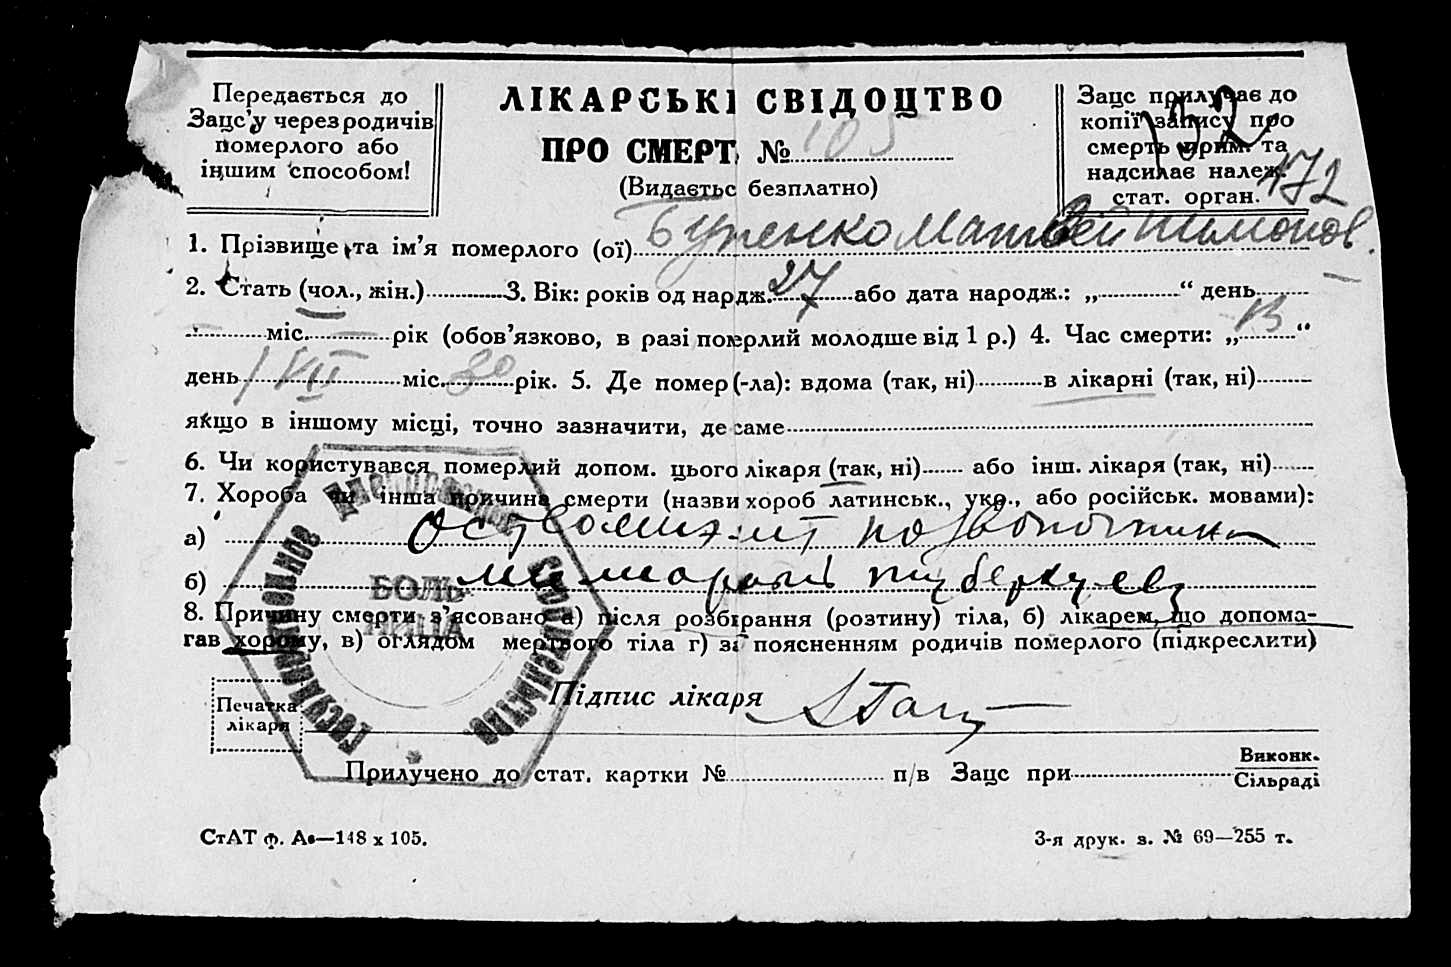 Передається до
Зацс'у через родичів
померлого або
іншим способом!
ЛІКАРСЬКІ СВІДОЦТВО
ПРО СМЕРТ №105
(Видаєтьс безплатно)
Зацс прилучає до
копії запису про
смерть прим. та
надсилає належ.
стат. орган.
132
172
1. Прізвище та ім'я померлого (ої) Матвей
2. Стать (чол., жін.) 3. Вік: років од нардж. 27 або дата народж.: „ “ день
міс. рік (обов'язково, в разі померлий молодше від 1 р.) 4. Час смерти: „ “
день VII міс. 30 рік. 5. Де помер (-ла): вдома (так, ні) в лікарні (так, ні)
якщо в іншому місці, точно зазначити, де саме
6. Чи користувався померлий допом. цього лікаря (так, ні) або інш. лікаря (так, ні)
7. Хороба чи інша причина смерти (назви хороб латинськ., укр., або російськ. мовами):
а) позвоночника
б) милиарный туберкулез
8. Причину смерти з'ясовано а) після розбірання (розтину) тіла, б) лікарем, що допома-
гав хорому, в) оглядом мертвого тіла г) за поясненням родичів померлого (підкреслити)
БОЛЬ
НИЦА
Печатка
лікаря
Підпис лікаря
Прилучено до стат. картки № п/в Зацс при Виконк.
Сільраді
СтАТ ф. А6—148 х 105.
3-я друк. з. № 69—255 т.